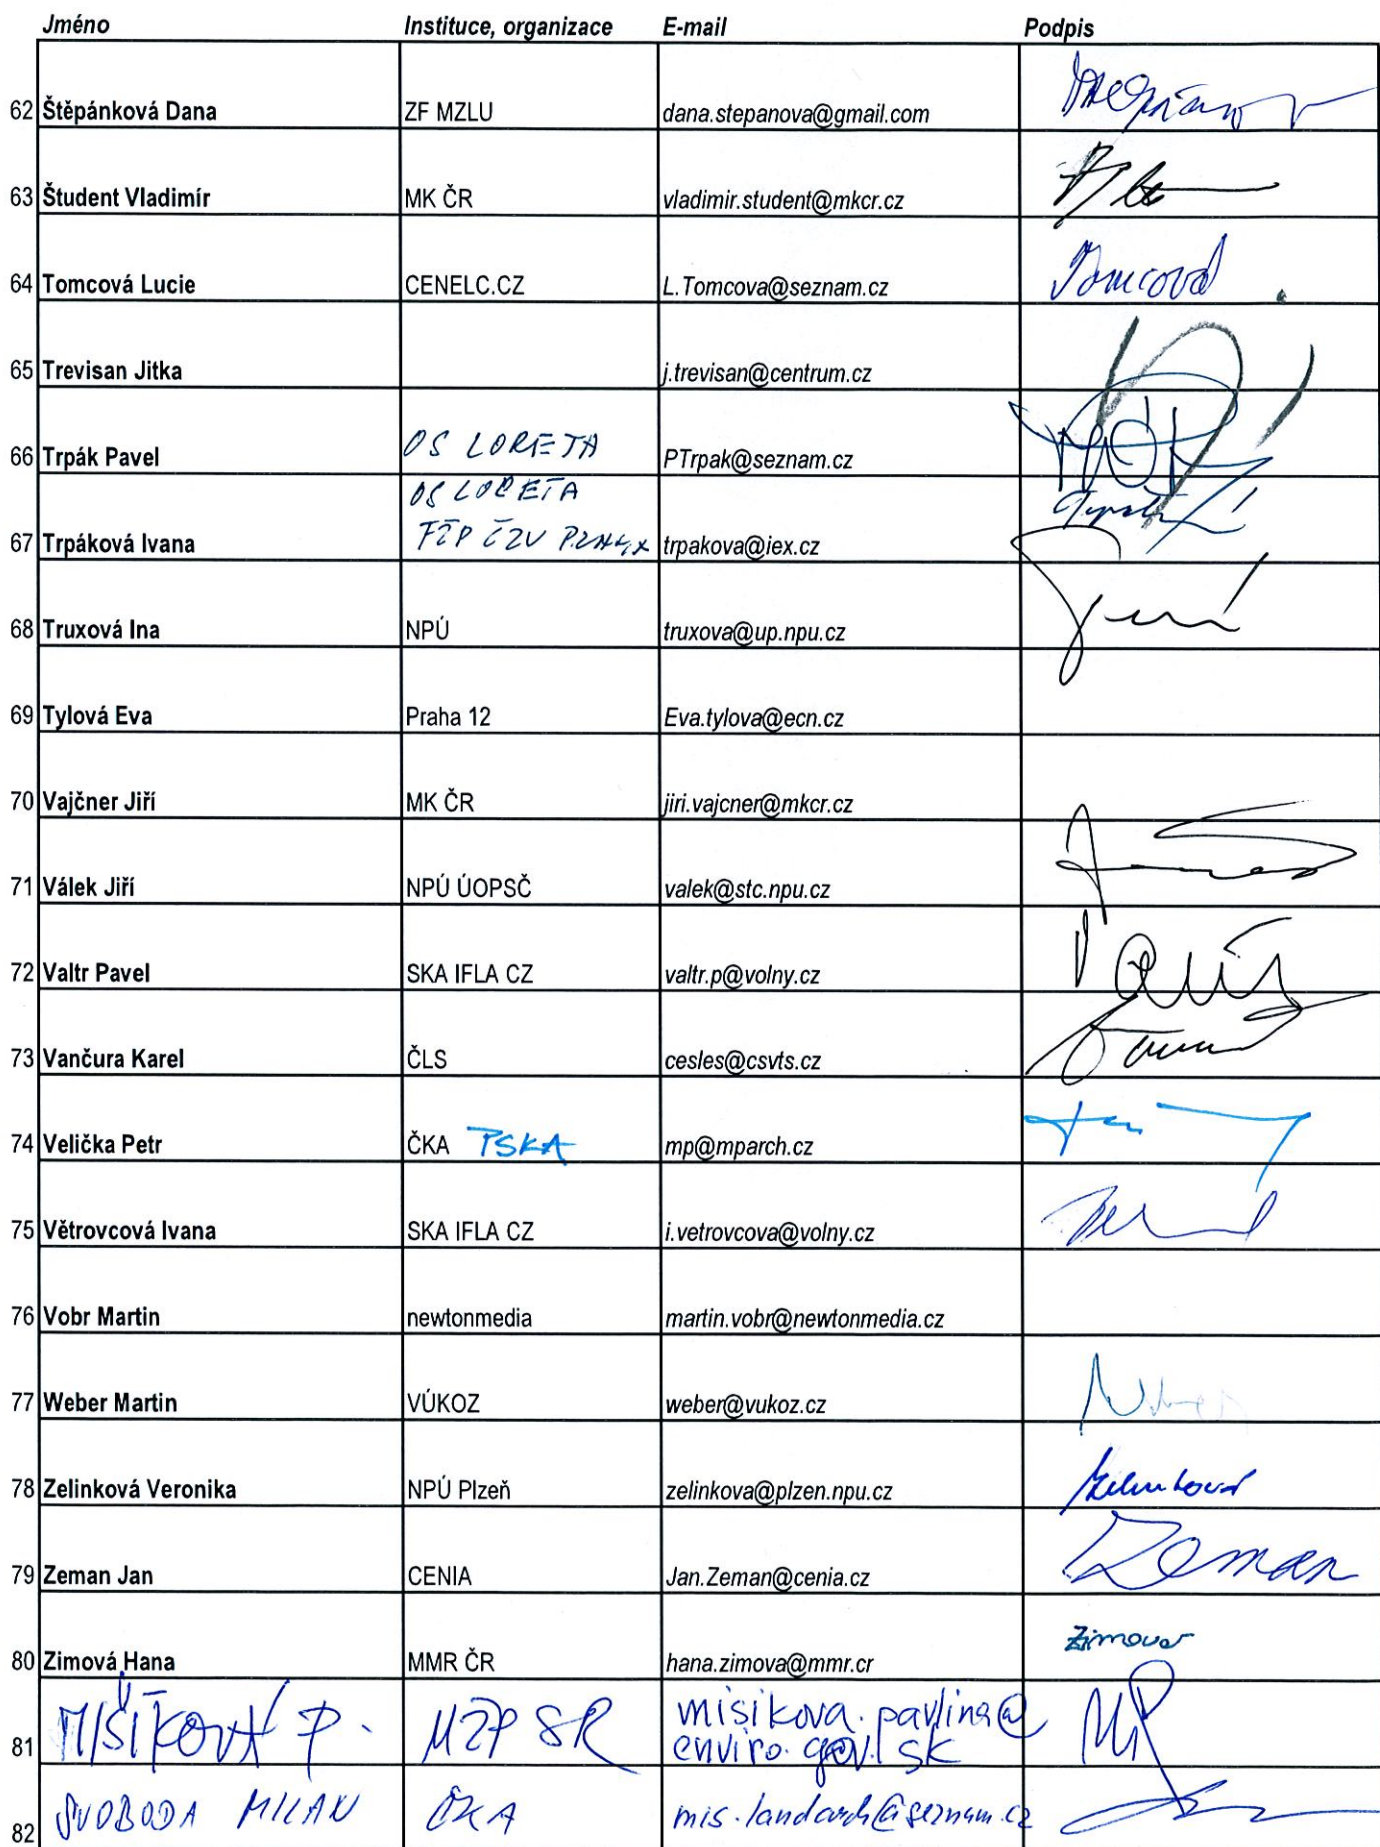 Jméno Instituce, organizace E-mail Podpis
62 Štěpánková Dana ZF MZLU dana.stepanova@gmail.com
63 Študent Vladimír MK ČR vladimir.student@mkcr.cz
64 Tomcová Lucie CENELC.CZ L.Tomcova@seznam.cz Tomcová
65 Trevisan Jitka j.trevisan@centrum.cz
66 Trpák Pavel OS LORETA PTrpak@seznam.cz
OS LORETA
67 Trpáková Ivana FŽP ČZU PRAHA trpakova@iex.cz
68 Truxová Ina NPÚ truxova@up.npu.cz
69 Tylová Eva Praha 12 Eva.tylova@ecn.cz
70 Vajčner Jiří MK ČR jiri.vajcner@mkcr.cz
71 Válek Jiří NPÚ ÚOPSČ valek@stc.npu.cz
72 Valtr Pavel SKA IFLA CZ valtr.p@volny.cz
73 Vančura Karel ČLS cesles@csvts.cz
74 Velička Petr ČKA PSKA mp@mparch.cz
75 Větrovcová Ivana SKA IFLA CZ i.vetrovcova@volny.cz
76 Vobr Martin newtonmedia martin.vobr@newtonmedia.cz
77 Weber Martin VÚKOZ weber@vukoz.cz
78 Zelinková Veronika NPÚ Plzeň zelinkova@plzen.npu.cz Zelinková
79 Zeman Jan CENIA Jan.Zeman@cenia.cz Zeman
80 Zimová Hana MMR ČR hana.zimova@mmr.cr Zimová
81 MIŠÍKOVÁ P. MŽP SR misikova.pavlina@
enviro.gov.sk
82 SVOBODA MILAN ČKA mis.landarch@seznam.cz